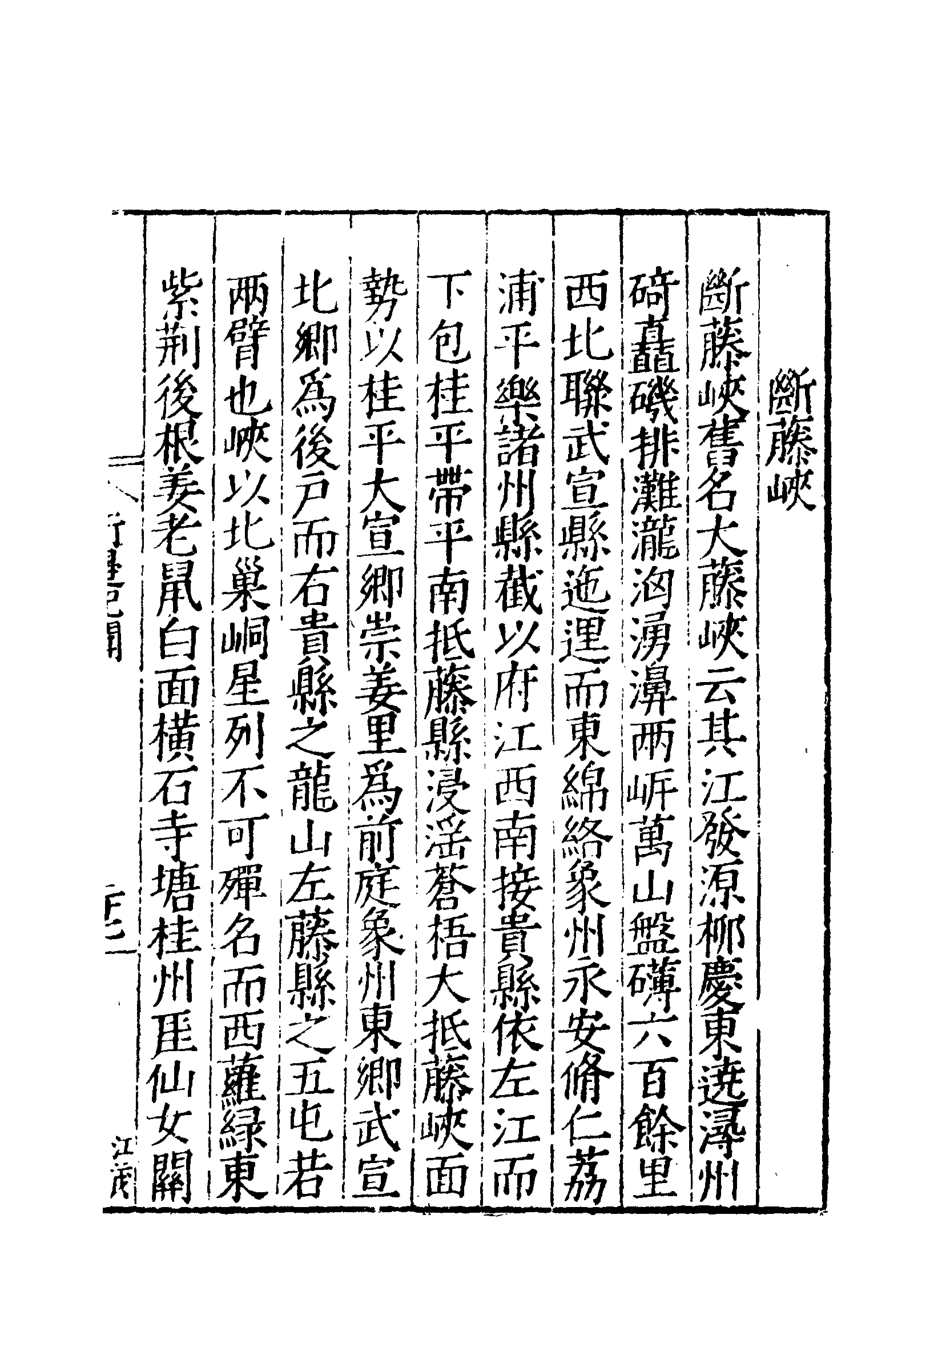 斷藤峽
斷藤峽舊名大藤峽云其江發源柳慶東遶潯州
碕矗磯排灘瀧洶湧濞兩崕萬山盤礴六百餘里
西北聯武宣縣迤邐而東綿絡象州永安脩仁荔
浦平樂諸州縣截以府江西南接貴縣依左江而
下包桂平帶平南抵藤縣浸滛蒼梧大抵藤峽面
勢以桂平大宣鄉崇姜里爲前庭象州東鄉武宣
北鄉爲後户而右貴縣之龍山左藤縣之五屯若
兩臂也峽以北巢峒星列不可殫名而西蘿緑東
紫荆後根姜老鼠白面橫石寺塘桂州厓仙女關
行邊紀聞
江茂